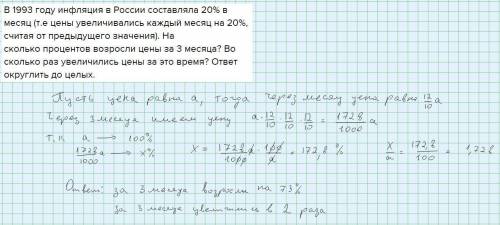 В 1993 году инфляция в России составляла 20% в
месяц (т.е цены увеличивались каждый месяц на 20%,
считая от предыдущего значения). На
сколько процентов возросли цены за 3 месяца? Во
сколько раз увеличились цены за это время? Ответ
округлить до целых.
Пусть цена равна a, тогда через месяц цена равна 12/10 a
Через 3 месяца имеем цену a · 12/10 · 12/10 · 12/10 = 1728/1000 a
т.к. a → 100%
1728/1000 a → x%
x = 1728 a · 100 / 1000 a = 172,8 %
x/a = 172,8/100 = 1,728
Ответ: за 3 месяца возросли на 73%
за 3 месяца увеличились в 2 раза